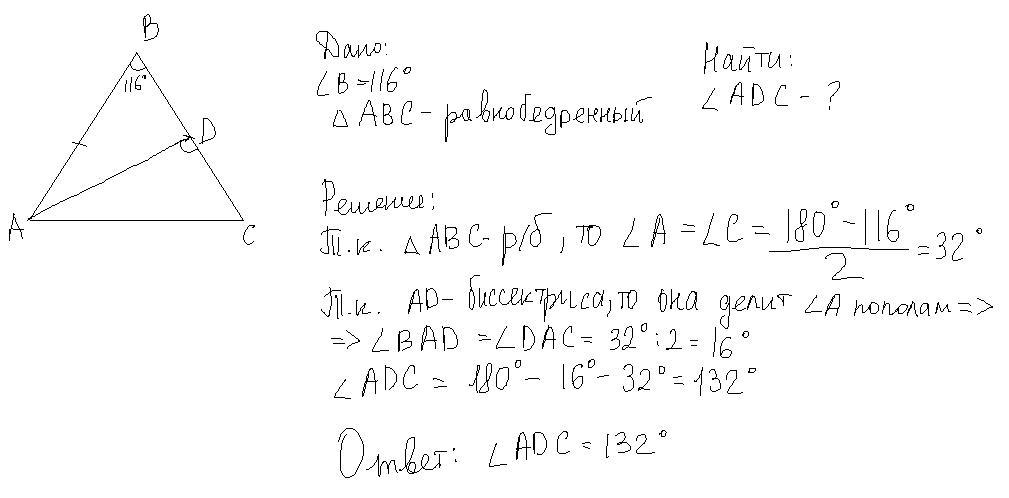 B
116°
D
A
C
Дано:
∠B=116°
△ABC - равнобедренный
Найти:
∠ADC - ?
Решение:
Т.к. △ABC - р/б, то ∠A = ∠C = (180° - 116°)/2 = 32°
Т.к. AD - биссектриса, то она делит ∠A пополам =>
=> ∠BAD = ∠DAC = 32° : 2 = 16°
∠ADC = 180° - 16° - 32° = 132°
Ответ: ∠ADC = 132°